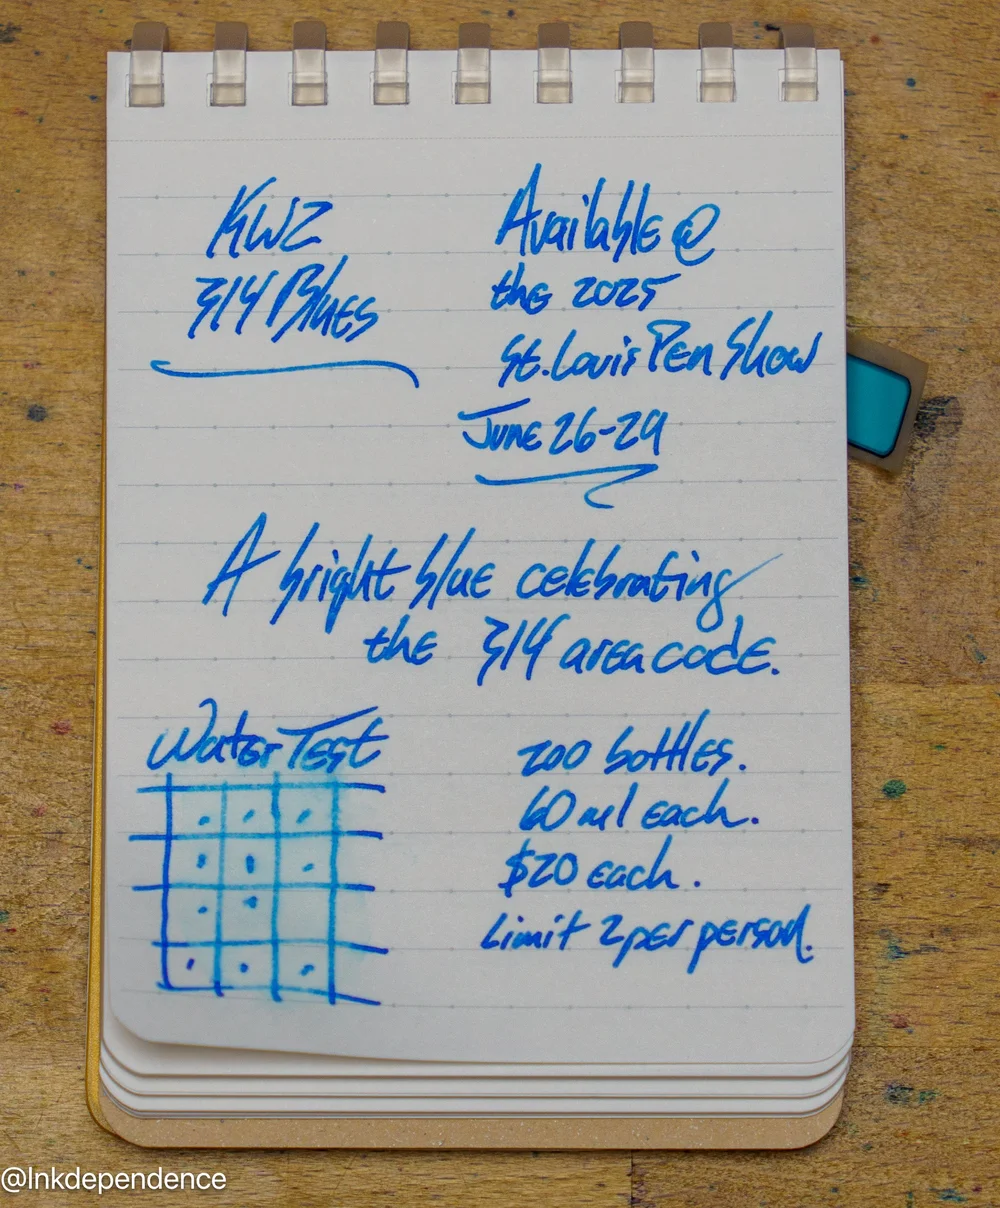 KWZ
314 Blues
Available @
the 2025
St. Louis Pen Show
June 26-29
A bright blue celebrating
the 314 area code.
Water Test
200 bottles.
60 ml each.
$20 each.
Limit 2 per person.
@Inkdependence